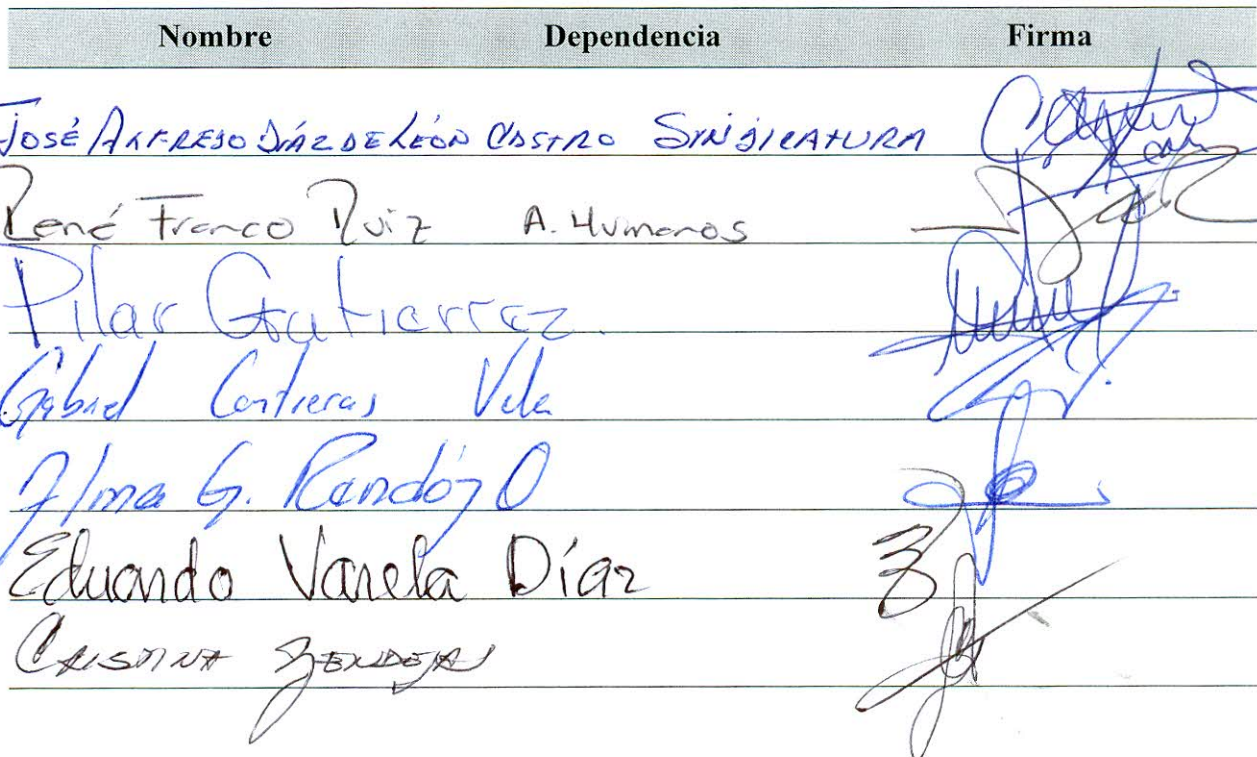 Nombre Dependencia Firma
JOSÉ ALFREDO DÍAZ DE LEÓN CASTRO SINDICATURA
René Franco Ruiz A. Humanos
Pilar Gutierrez.
Gabriel Contreras Vela
Alma G. Rendón O
Eduardo Varela Díaz
CRISTINA ZENDEJAS